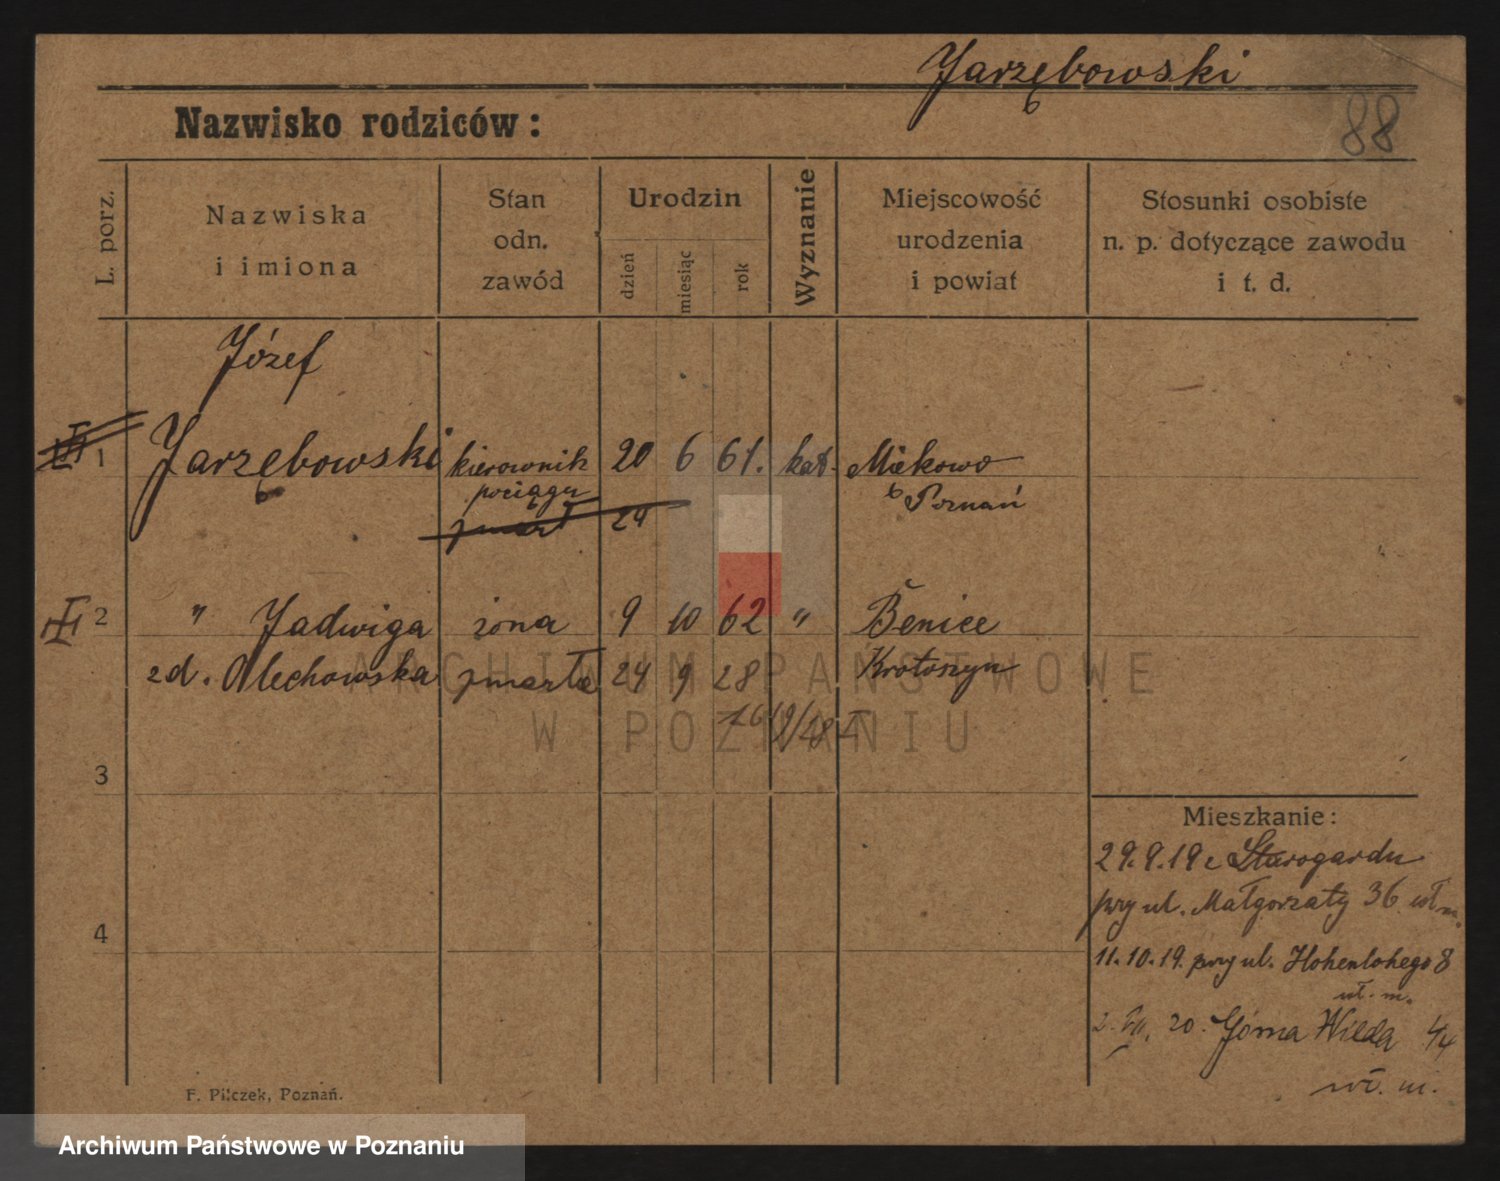 Jarzębowski
88
Nazwisko rodziców:
L. porz.
Nazwiska
i imiona
Stan
odn.
zawód
Urodzin
dzień
miesiąc
rok
Wyznanie
Miejscowość
urodzenia
i powiat
Stosunki osobiste
n. p. dotyczące zawodu
i t. d.
Józef
1 Jarzębowski kierownik 20 6 61. kat. Miekowo
pociągu Poznań
zmarł 24
2 " Jadwiga żona 9 10 62 " Benice
zd. Olechowska zmarła 24 9 28 Krotoszyn
3
4
Mieszkanie:
29.9.19 z Starogardu
przy ul. Małgorzaty 36 wł. m.
11.10.19. przy ul. Hohenlohego 8
wł. m.
20. Górna Wilda
wł. m.
F. Pilczek, Poznań.
ARCHIWUM PAŃSTWOWE
W POZNANIU
Archiwum Państwowe w Poznaniu